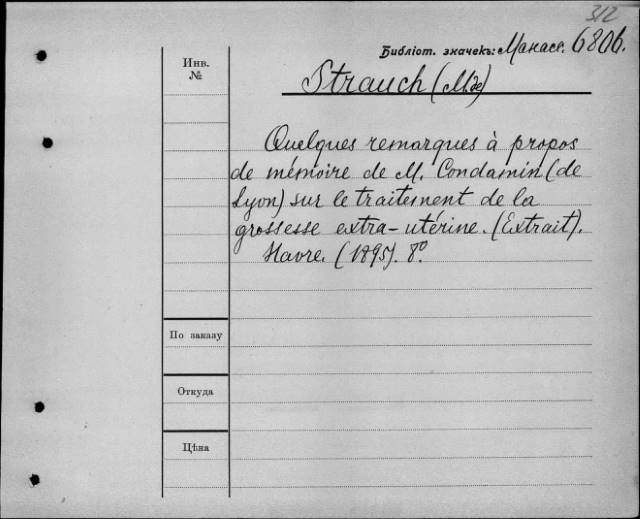 312
Библіот. значекъ: Манас. 6806.
Инв.
№
Strauch (M. de)
Quelques remarques à propos
de mémoire de M. Condamin (de
Lyon) sur le traitement de la
grossesse extra-utérine. (Extrait).
Havre. (1895). 8°.
По заказу
Откуда
Цѣна